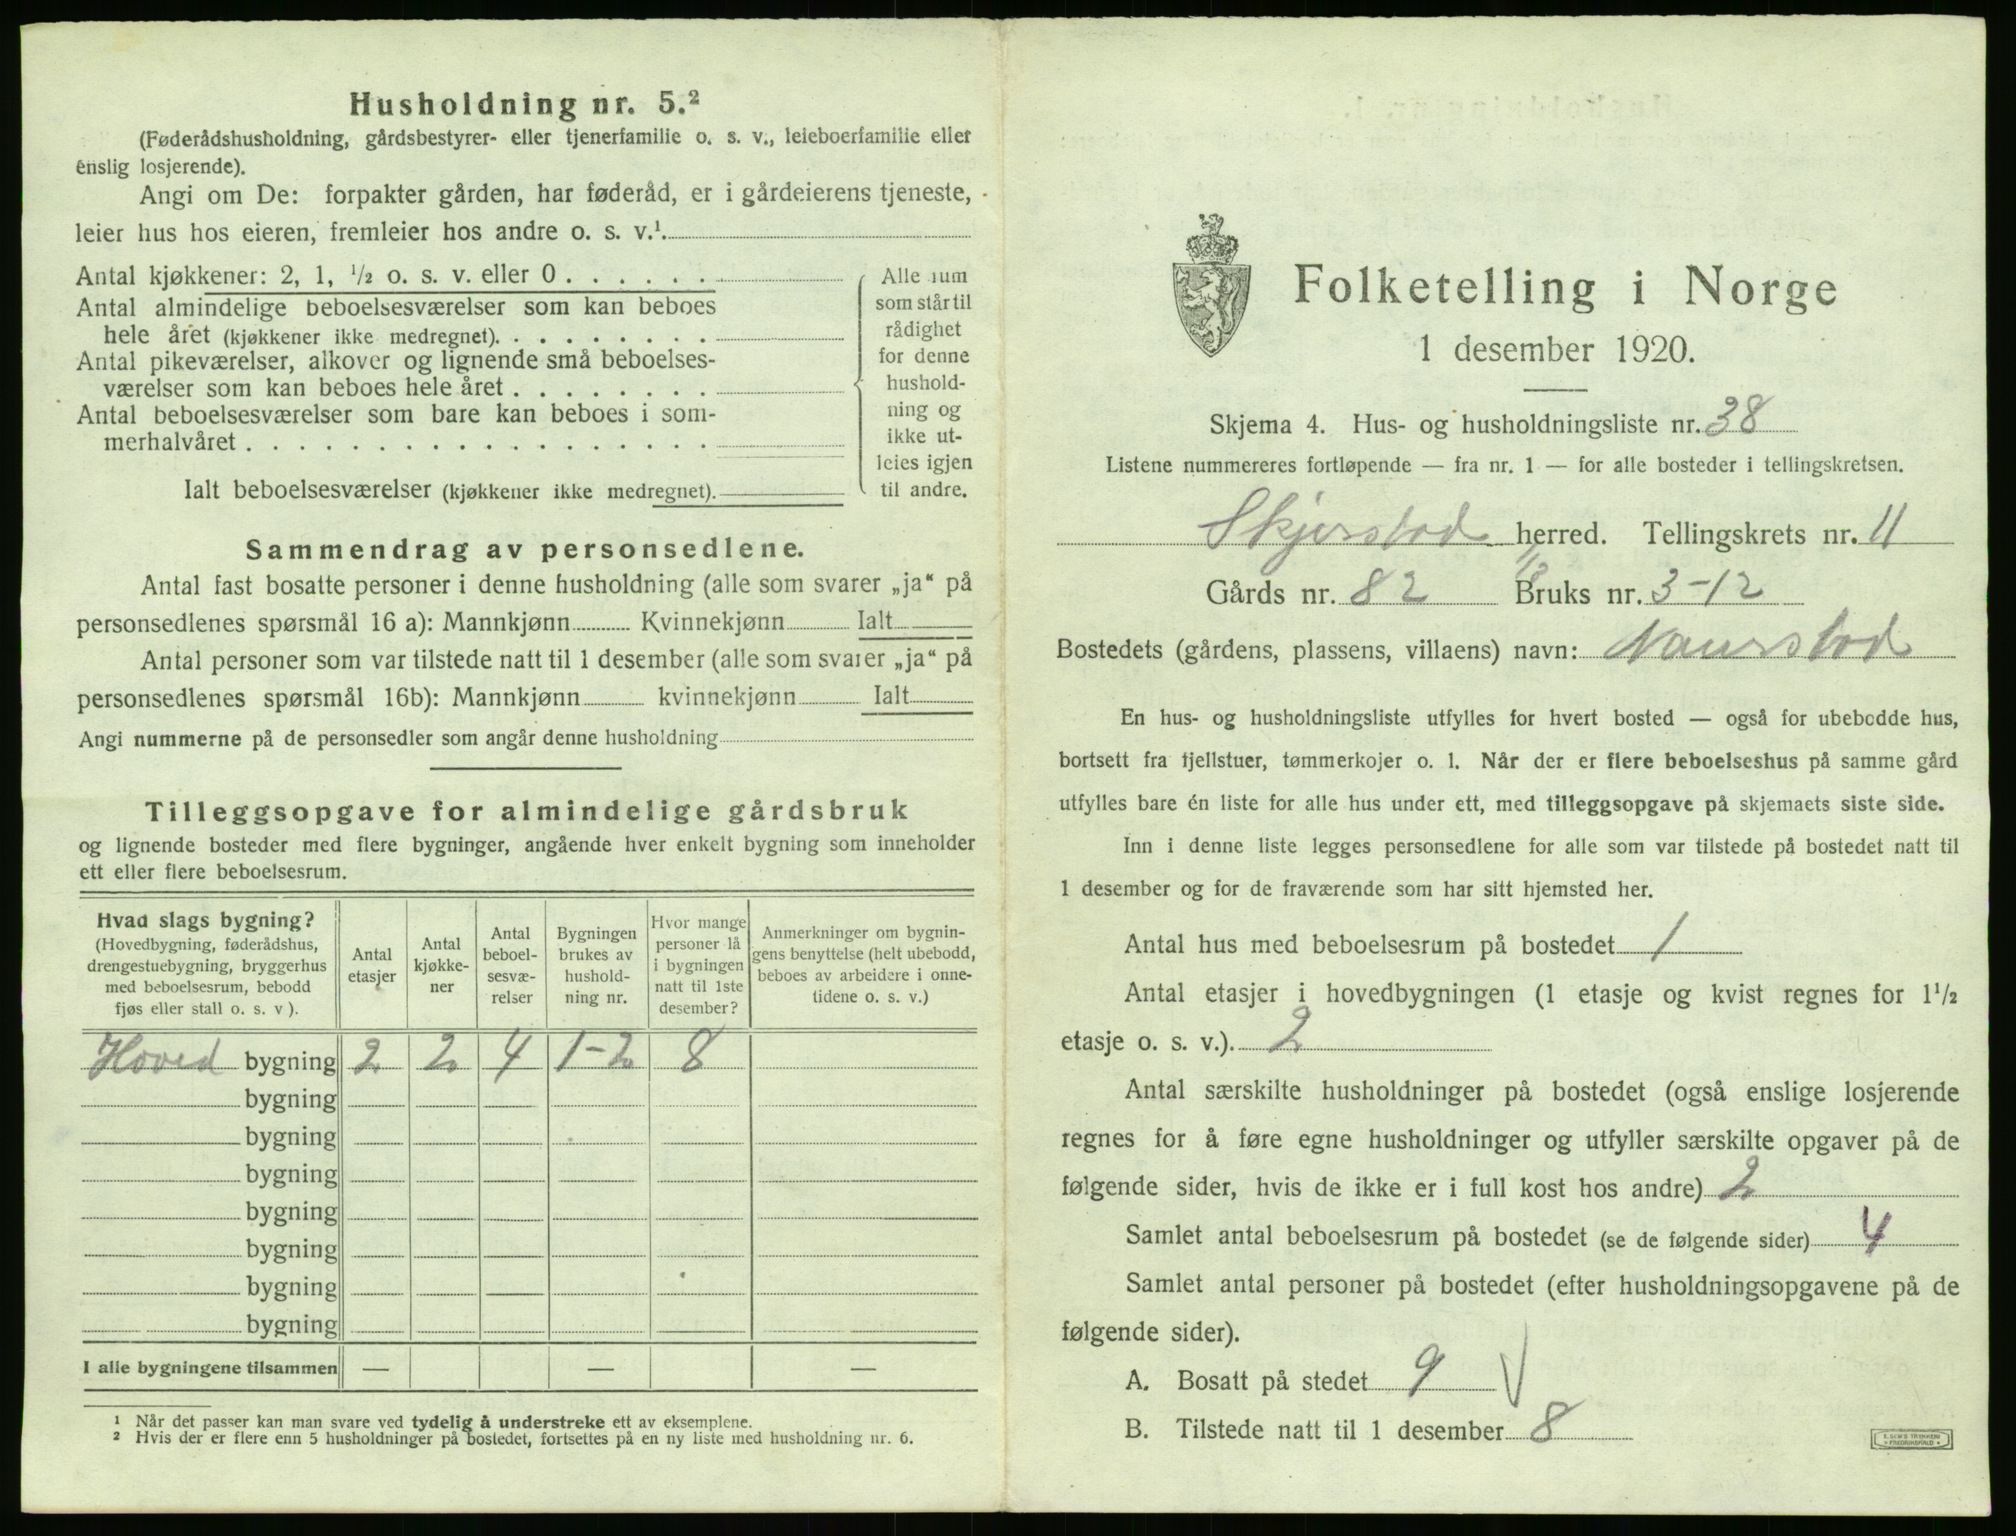 Husholdning nr. 5.²
(Føderådshusholdning, gårdsbestyrer- eller tjenerfamilie o. s. v., leieboerfamilie eller
enslig losjerende).
Angi om De: forpakter gården, har føderåd, er i gårdeierens tjeneste,
leier hus hos eieren, fremleier hos andre o. s. v.¹
Antal kjøkkener: 2, 1, ½ o. s. v. eller 0 . . . . . .
Antal almindelige beboelsesværelser som kan beboes
hele året (kjøkkener ikke medregnet). . . . . . . . .
Antal pikeværelser, alkover og lignende små beboelses-
værelser som kan beboes hele året . . . . . . . .
Antal beboelsesværelser som bare kan beboes i som-
merhalvåret . . . . . . . . . . . . . . . . . .
Ialt beboelsesværelser (kjøkkener ikke medregnet).
Alle rum
som står til
rådighet
for denne
hushold-
ning og
ikke ut-
leies igjen
til andre.
Sammendrag av personsedlene.
Antal fast bosatte personer i denne husholdning (alle som svarer „ja“ på
personsedlenes spørsmål 16 a): Mannkjønn Kvinnekjønn Ialt
Antal personer som var tilstede natt til 1 desember (alle som svarer „ja“ på
personsedlenes spørsmål 16b): Mannkjønn kvinnekjønn Ialt
Angi nummerne på de personsedler som angår denne husholdning
Tilleggsopgave for almindelige gårdsbruk
og lignende bosteder med flere bygninger, angående hver enkelt bygning som inneholder
ett eller flere beboelsesrum.
Hvad slags bygning?
(Hovedbygning, føderådshus,
drengestuebygning, bryggerhus
med beboelsesrum, bebodd
fjøs eller stall o. s. v ).
Antal
etasjer
Antal
kjøkke-
ner
Antal
beboel-
sesvæ-
relser
Bygningen
brukes av
hushold-
ning nr.
Hvor mange
personer lå
i bygningen
natt til 1ste
desember?
Anmerkninger om bygnin-
gens benyttelse (helt ubebodd,
beboes av arbeidere i onne-
tidene o. s. v.)
Hoved bygning 2 2 4 1-2 8
bygning
bygning
bygning
bygning
bygning
bygning
bygning
I alle bygningene tilsammen — — —
¹ Når det passer kan man svare ved tydelig å understreke ett av eksemplene.
² Hvis der er flere enn 5 husholdninger på bostedet, fortsettes på en ny liste med husholdning nr. 6.
Folketelling i Norge
1 desember 1920.
Skjema 4. Hus- og husholdningsliste nr. 38
Listene nummereres fortløpende — fra nr. 1 — for alle bosteder i tellingskretsen.
Skjerstad herred. Tellingskrets nr. 11
Gårds nr. 82 Bruks nr. 3-12
Bostedets (gårdens, plassens, villaens) navn: Naurstad
En hus- og husholdningsliste utfylles for hvert bosted — også for ubebodde hus,
bortsett fra fjellstuer, tømmerkojer o. l. Når der er flere beboelseshus på samme gård
utfylles bare én liste for alle hus under ett, med tilleggsopgave på skjemaets siste side.
Inn i denne liste legges personsedlene for alle som var tilstede på bostedet natt til
1 desember og for de fraværende som har sitt hjemsted her.
Antal hus med beboelsesrum på bostedet 1
Antal etasjer i hovedbygningen (1 etasje og kvist regnes for 1½
etasje o. s. v.). 2
Antal særskilte husholdninger på bostedet (også enslige losjerende
regnes for å føre egne husholdninger og utfyller særskilte opgaver på de
følgende sider, hvis de ikke er i full kost hos andre) 2
Samlet antal beboelsesrum på bostedet (se de følgende sider) 4
Samlet antal personer på bostedet (efter husholdningsopgavene på de
følgende sider).
A. Bosatt på stedet 9
B. Tilstede natt til 1 desember 8